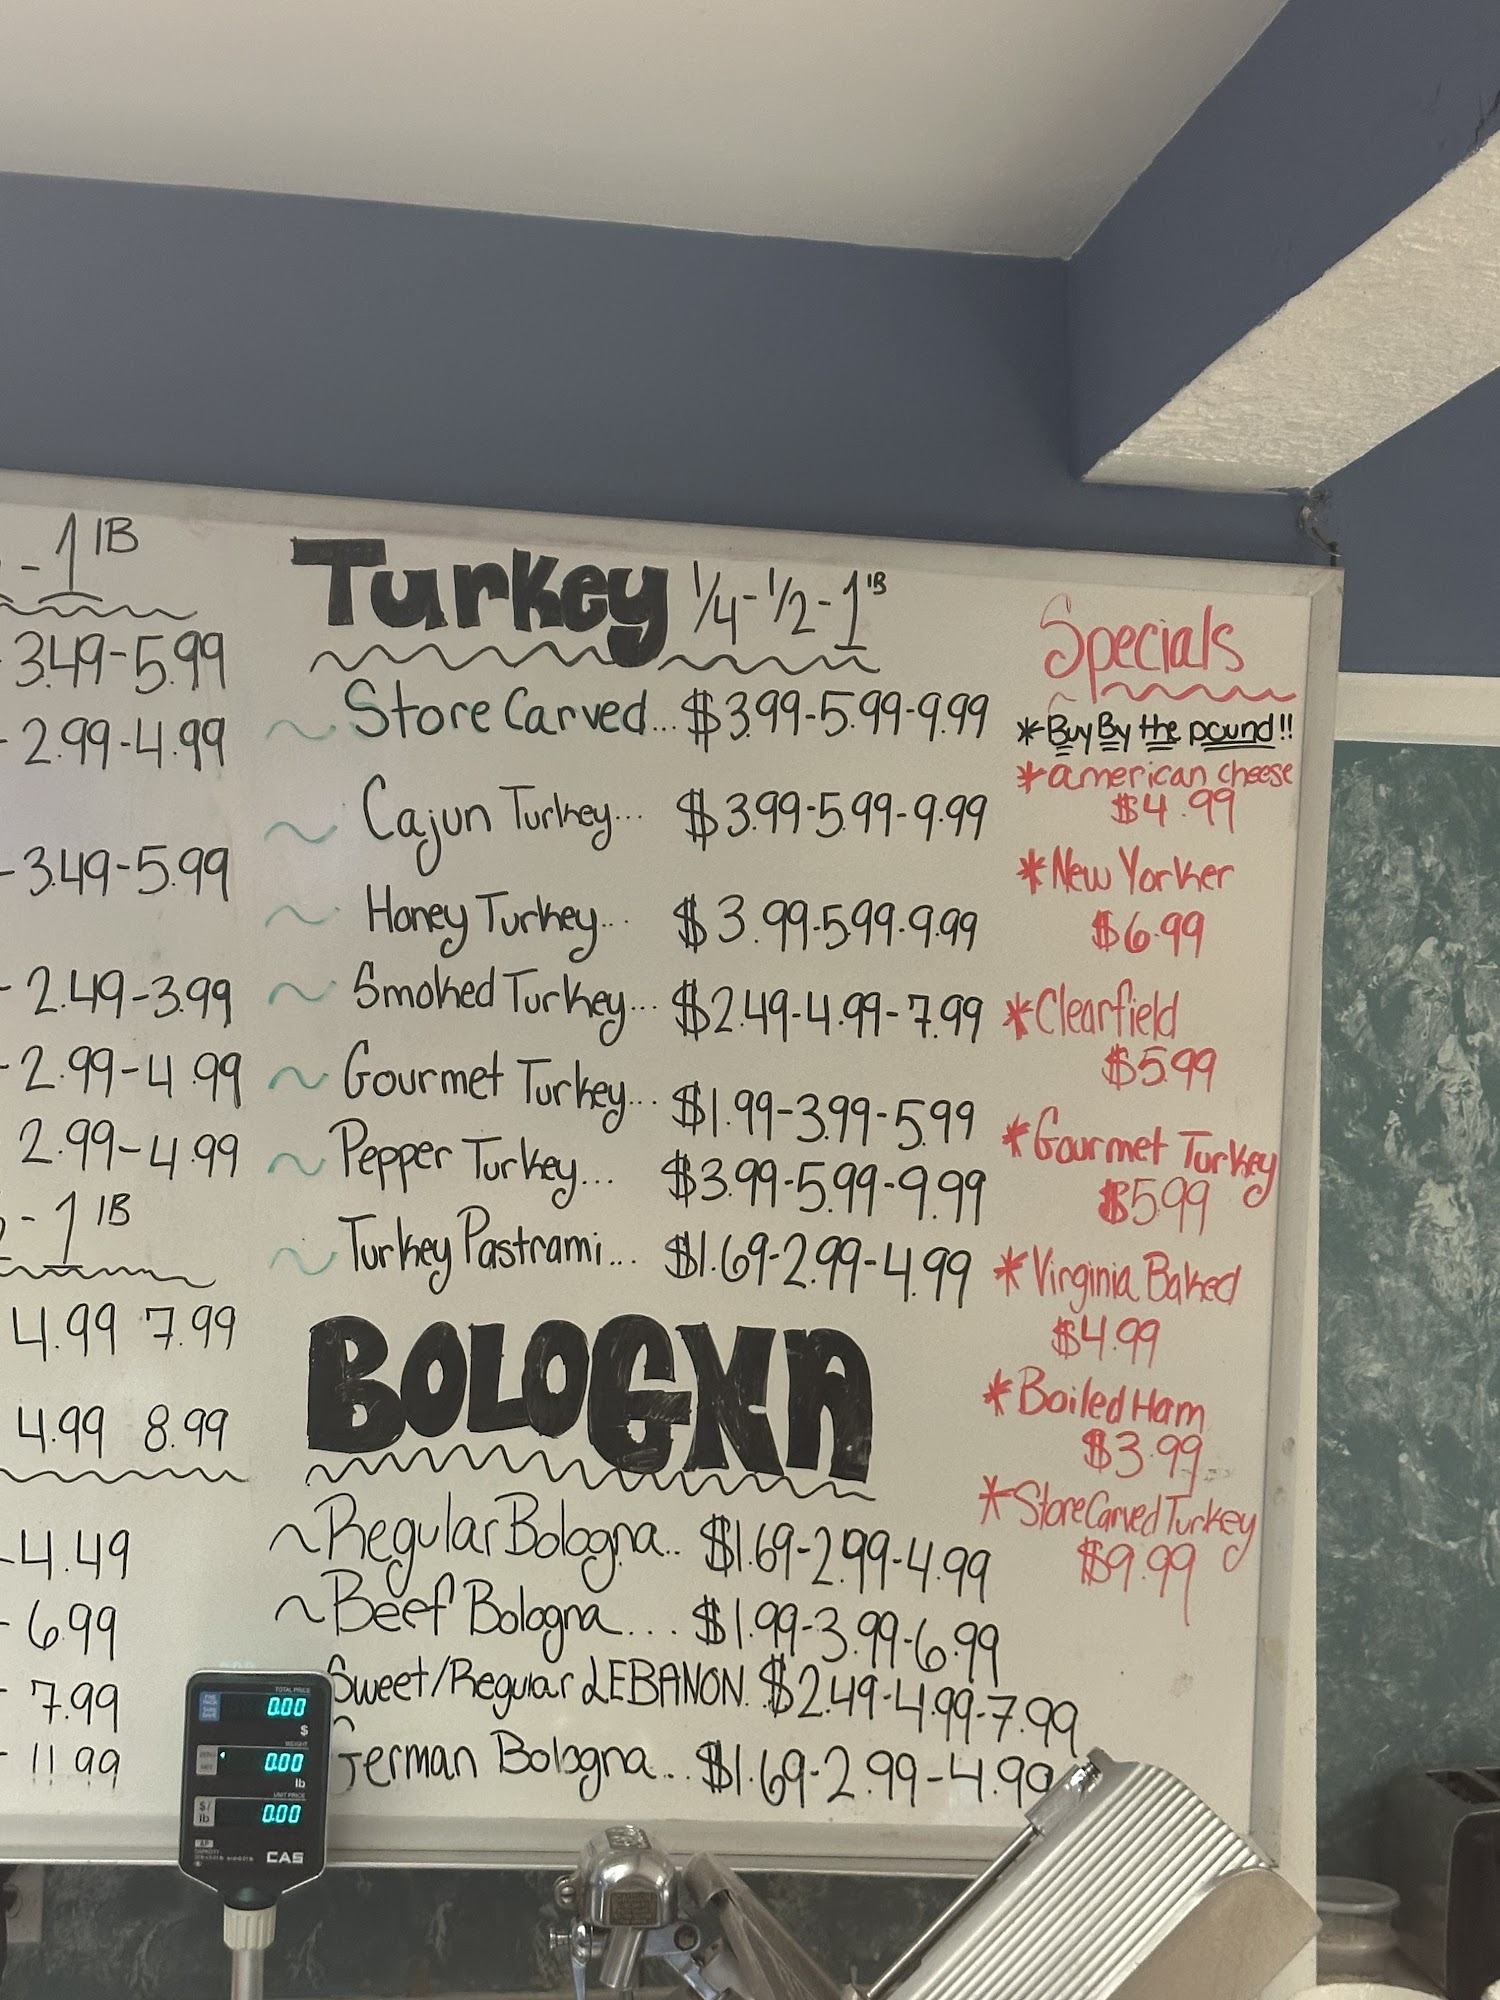 -1 lB
3.49-5.99
-2.99-4.99
-3.49-5.99
-2.49-3.99
-2.99-4.99
2.99-4.99
-1 lB
4.99 7.99
4.99 8.99
-4.49
-6.99
-7.99
-11.99
Turkey 1/4-1/2-1 lB
~ Store Carved... $3.99-5.99-9.99
~ Cajun Turkey... $3.99-5.99-9.99
~ Honey Turkey... $3.99-5.99-9.99
~ Smoked Turkey... $2.49-4.99-7.99
~ Gourmet Turkey... $1.99-3.99-5.99
~ Pepper Turkey... $3.99-5.99-9.99
~ Turkey Pastrami... $1.69-2.99-4.99
BOLOGNA
~Regular Bologna.. $1.69-2.99-4.99
~Beef Bologna... $1.99-3.99-6.99
Sweet/Regular LEBANON.. $2.49-4.99-7.99
German Bologna... $1.69-2.99-4.99
Specials
*Buy By the pound!!
*american cheese
$4.99
*New Yorker
$6.99
*Clearfield
$5.99
*Gourmet Turkey
$5.99
*Virginia Baked
$4.99
*Boiled Ham
$3.99
*Store Carved Turkey
$9.99
TOTAL PRICE
0.00
$
WEIGHT
0.00
lb
UNIT PRICE
$/lb
0.00
CAS